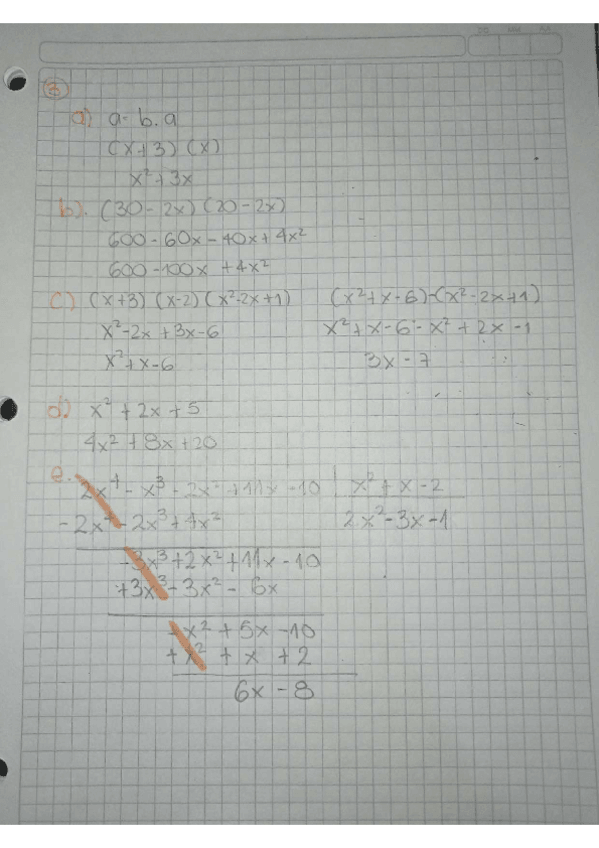 DD MM AA
3
a) a= b.a
(x+3) (x)
x²+3x
b). (30-2x)(20-2x)
600-60x-40x+4x²
600-100x +4x²
c) (x+3) (x-2) (x²-2x+1) (x²+x-6)-(x²-2x+1)
x²-2x+3x-6 x²+x-6-x²+2x-1
x²+x-6 3x-7
d) x²+2x+5
4x²+8x+20
e. 2x⁴-x³-2x²+11x-10 x²+x-2
-2x⁴-2x³+4x² 2x²-3x-1
-3x³+2x²+11x-10
+3x³+3x²-6x
-x²+5x-10
+x²+x+2
6x-8